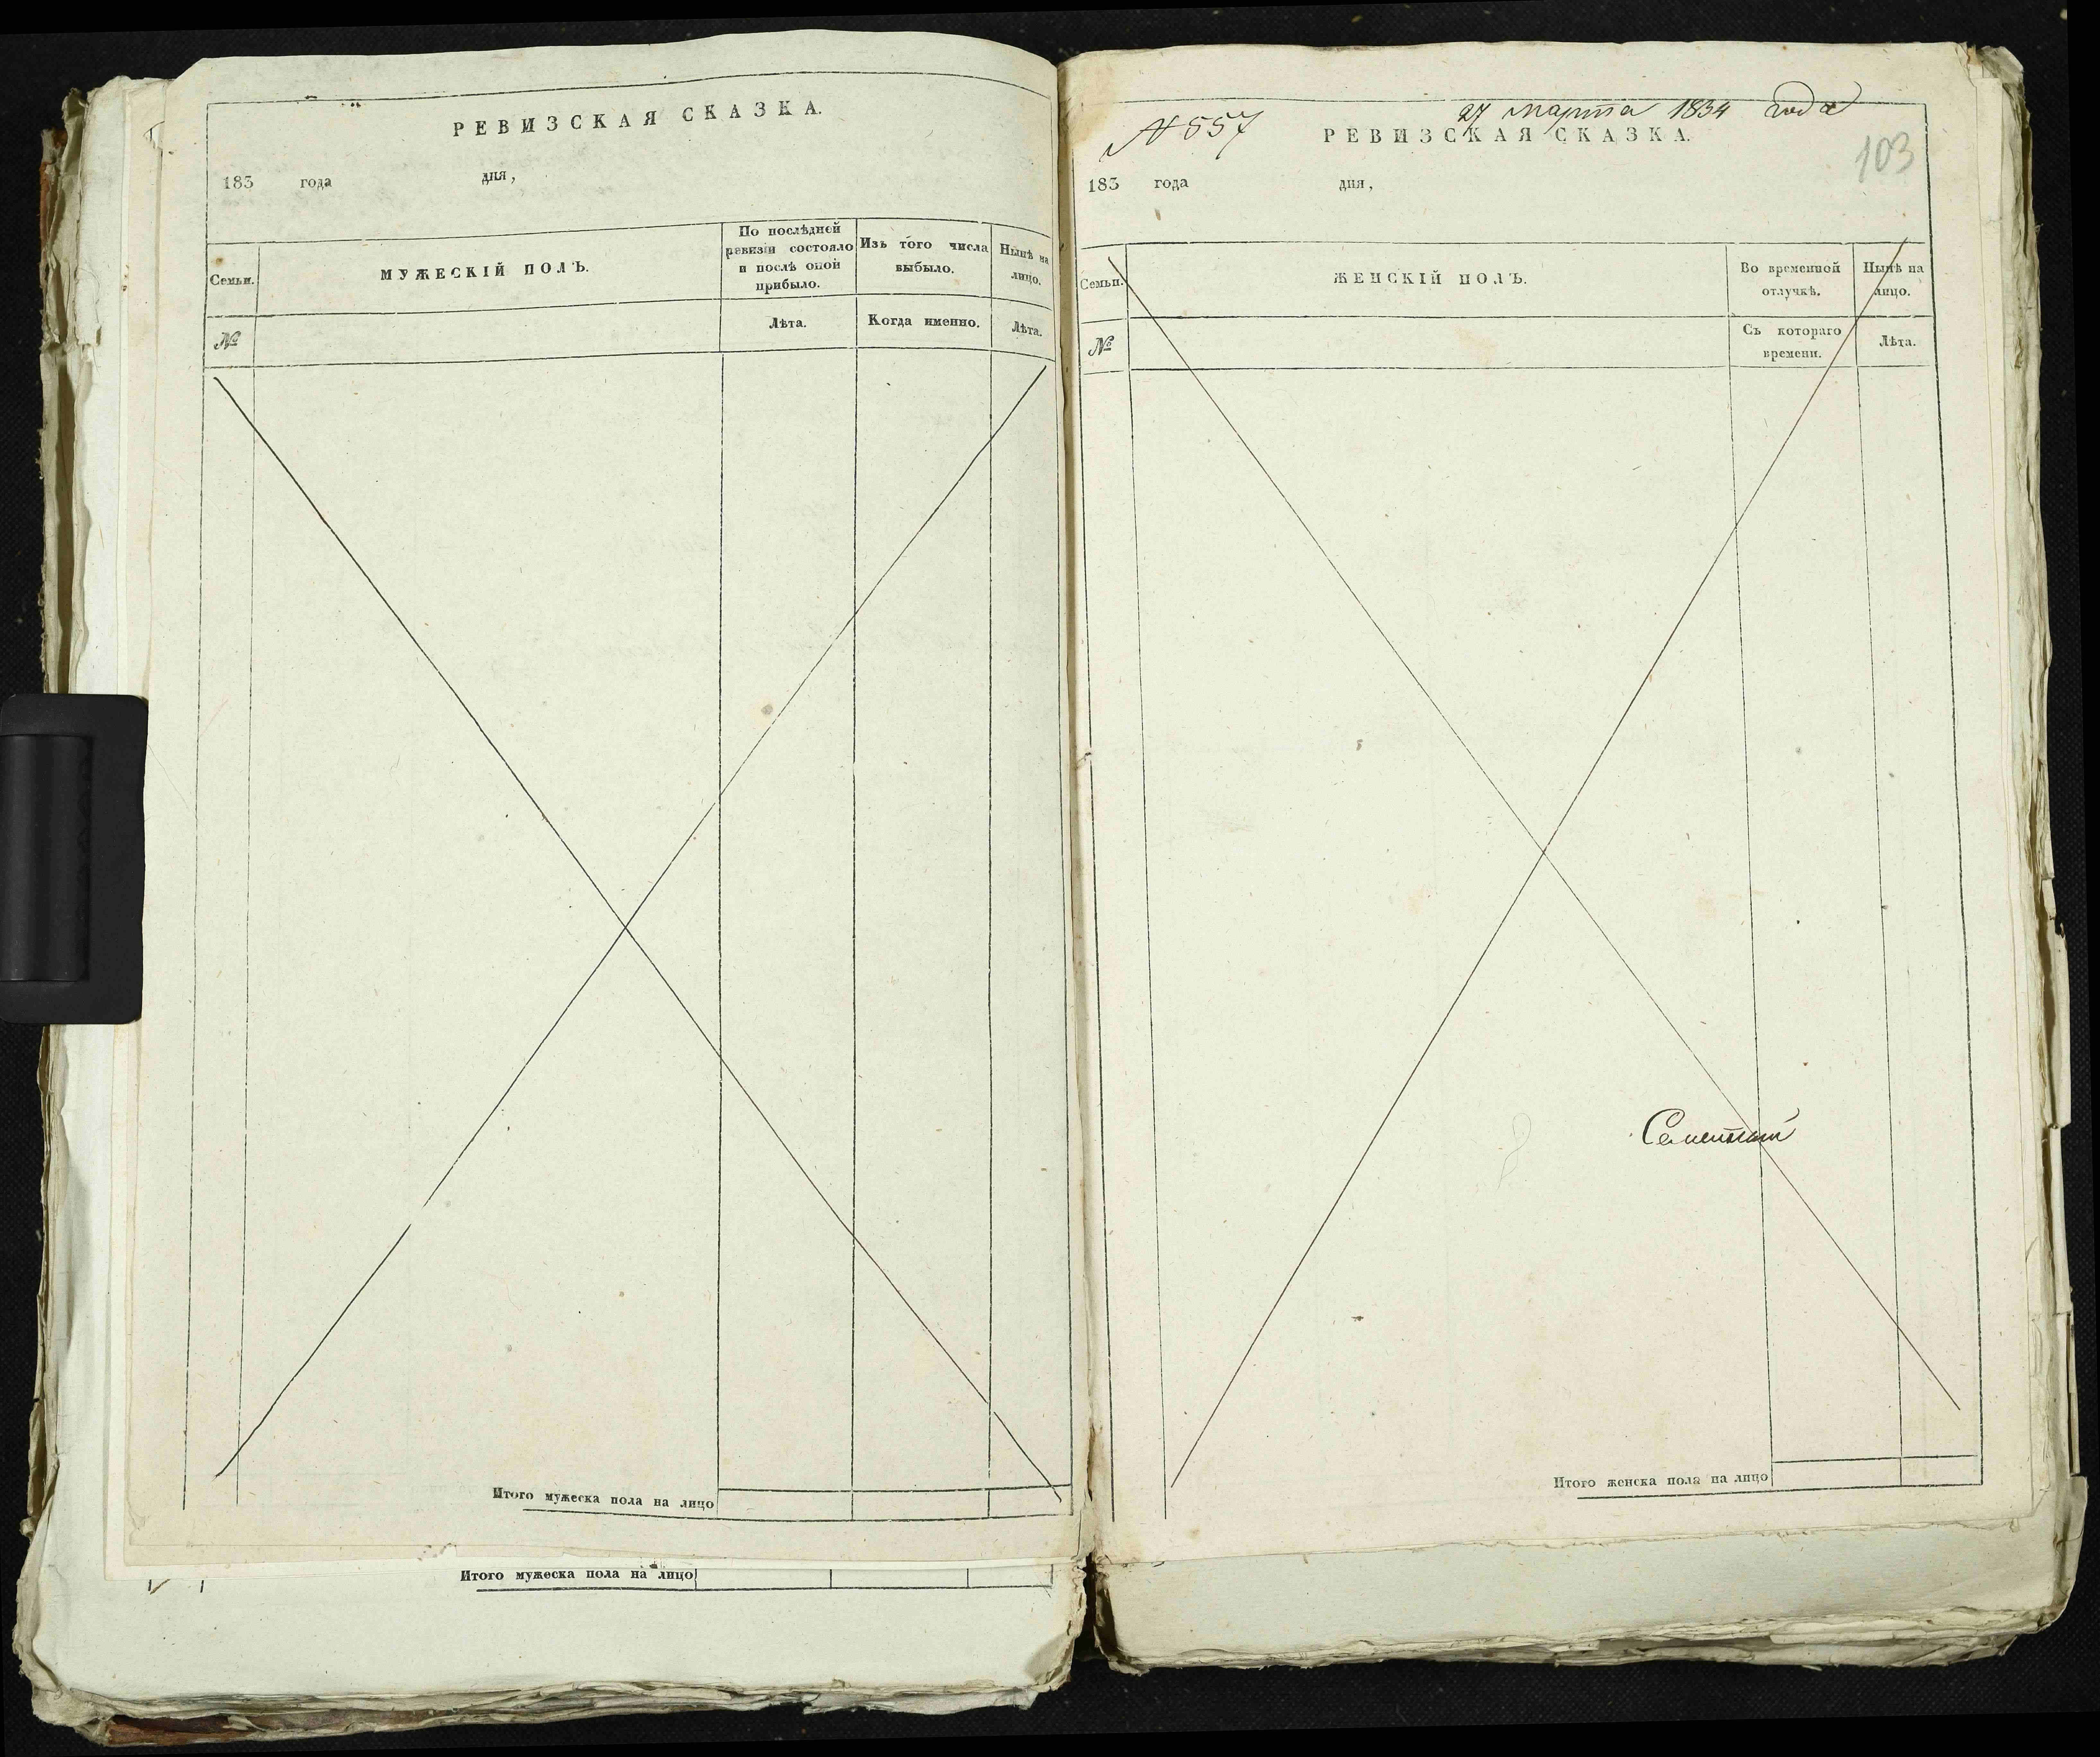 РЕВИЗСКАЯ СКАЗКА.
183 года дня,
Семьи.
МУЖЕСКІЙ ПОЛЪ.
По послѣдней ревизіи состояло и послѣ оной прибыло.
Изъ того числа выбыло.
Нынѣ на лицо.
№
Лѣта.
Когда именно.
Лѣта.
Итого мужеска пола на лицо
Итого мужеска пола на лицо
27 марта 1834 года
№ 557
РЕВИЗСКАЯ СКАЗКА.
103
183 года дня,
Семьи.
ЖЕНСКІЙ ПОЛЪ.
Во временной отлучкѣ.
Нынѣ на лицо.
№
Съ котораго времени.
Лѣта.
Итого женска пола на лицо